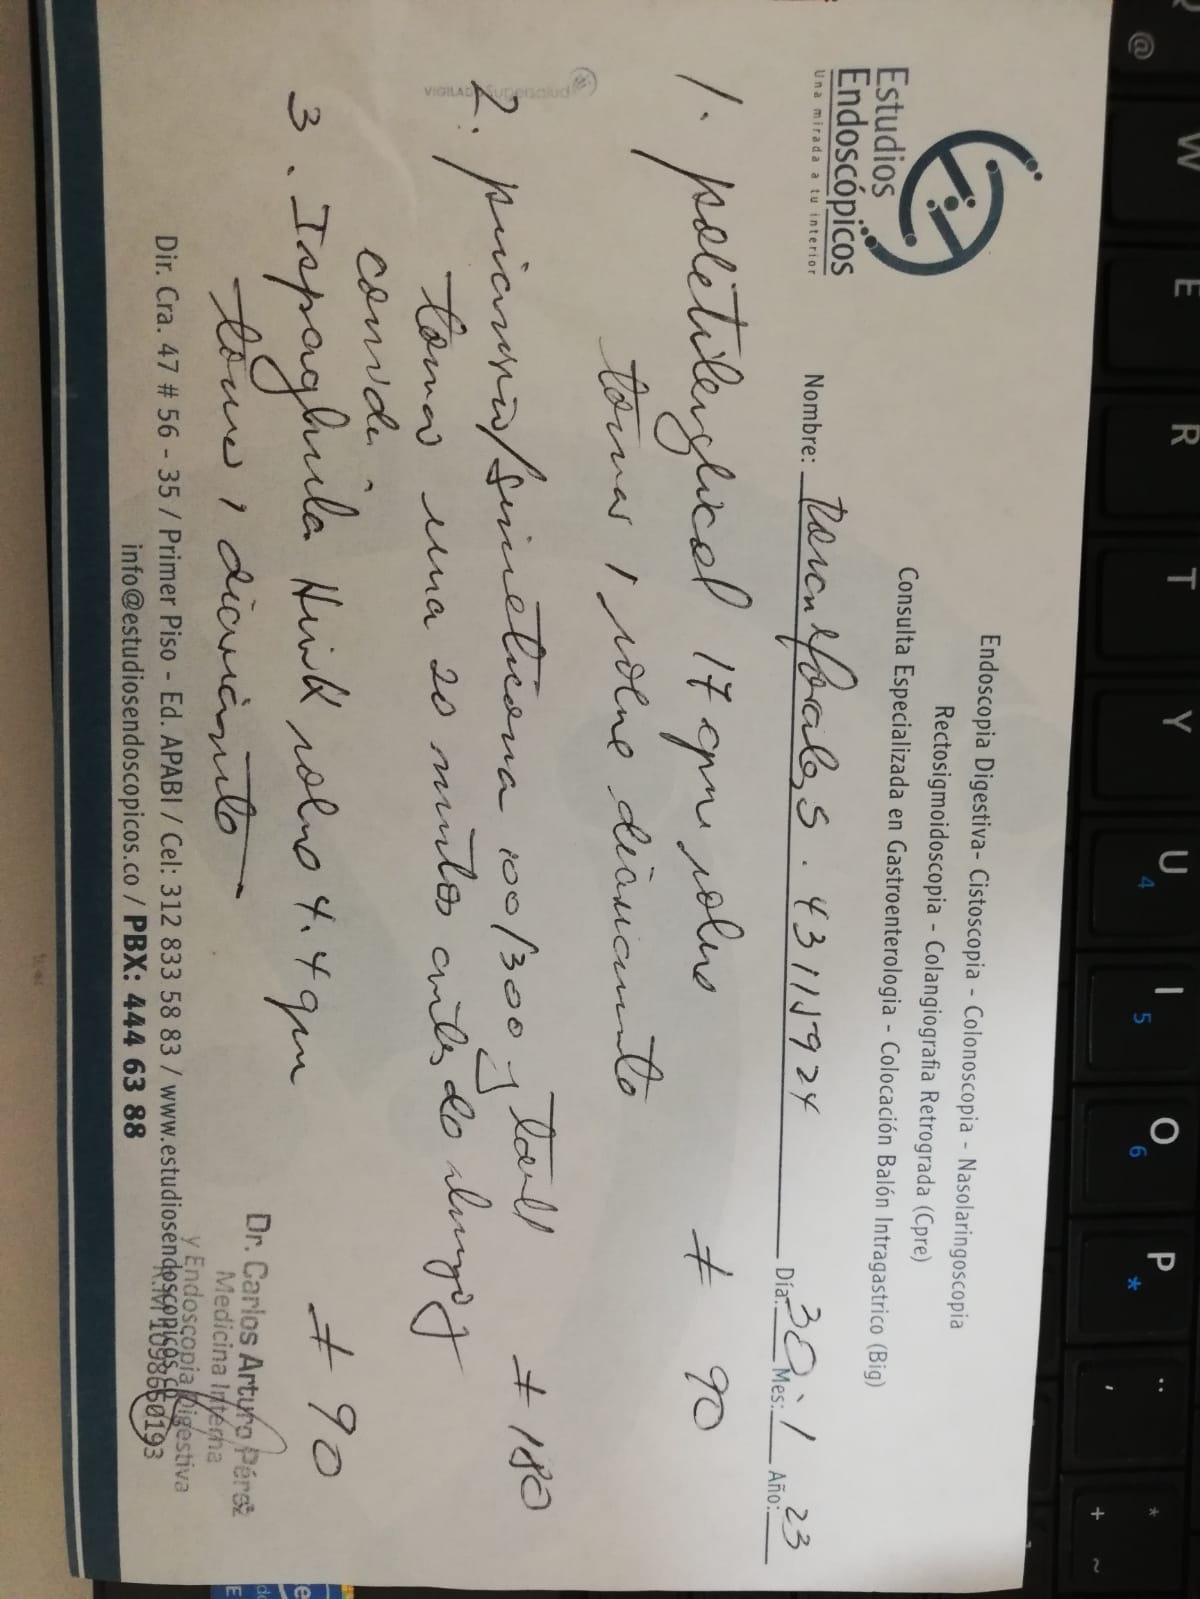 Estudios
Endoscópicos
Una mirada a tu interior
Endoscopia Digestiva- Cistoscopia - Colonoscopia - Nasolaringoscopia
Rectosigmoidoscopia - Colangiografia Retrograda (Cpre)
Consulta Especializada en Gastroenterologia - Colocación Balón Intragastrico (Big)
Nombre: 43115924 Día: 30 Mes: 1 Año: 23
1. polietilenglicol 17 gm sobres # 90
tomar 1 sobre diariamente
2. pinaverio/simeticona 100/300 mg tab # 180
tomar una 20 minutos antes de almuerzo
comida
3. Ispaghula Husk sobres 4.4 gm # 90
tomar 1 diariamente
VIGILADO Supersalud
Dr. Carlos Arturo Pérez
Medicina Interna
y Endoscopia Digestiva
R.M 1098650193
Dir. Cra. 47 # 56 - 35 / Primer Piso - Ed. APABI / Cel: 312 833 58 83 / www.estudiosendoscopicos.co
info@estudiosendoscopicos.co / PBX: 444 63 88
@
W
E
R
T
Y
U
4
I
5
O
6
P
*
¨
;
*
+
~